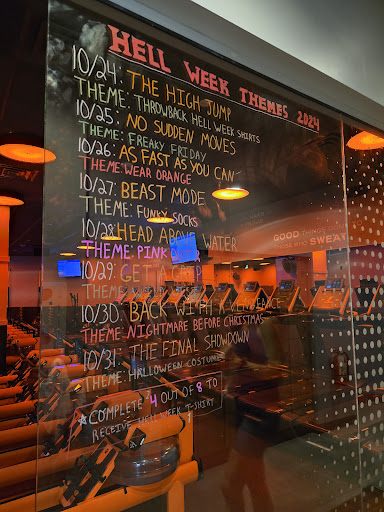 HELL WEEK THEMES 2024
10/24: THE HIGH JUMP
THEME: THROWBACK HELL WEEK SHIRTS
10/25: NO SUDDEN MOVES
THEME: FREAKY FRIDAY
10/26: AS FAST AS YOU CAN
THEME: WEAR ORANGE
10/27: BEAST MODE
THEME: FUNKY SOCKS
10/28: HEAD ABOVE WATER
THEME: PINK
10/29: GET A GRIP
THEME:
10/30: BACK WITH A VENGEANCE
THEME: NIGHTMARE BEFORE CHRISTMAS
10/31: THE FINAL SHOWDOWN
THEME: HALLOWEEN COSTUMES
COMPLETE 4 OUT OF 8 TO
RECEIVE HELL WEEK T-SHIRT
GOOD THINGS
THOSE WHO SWEAT